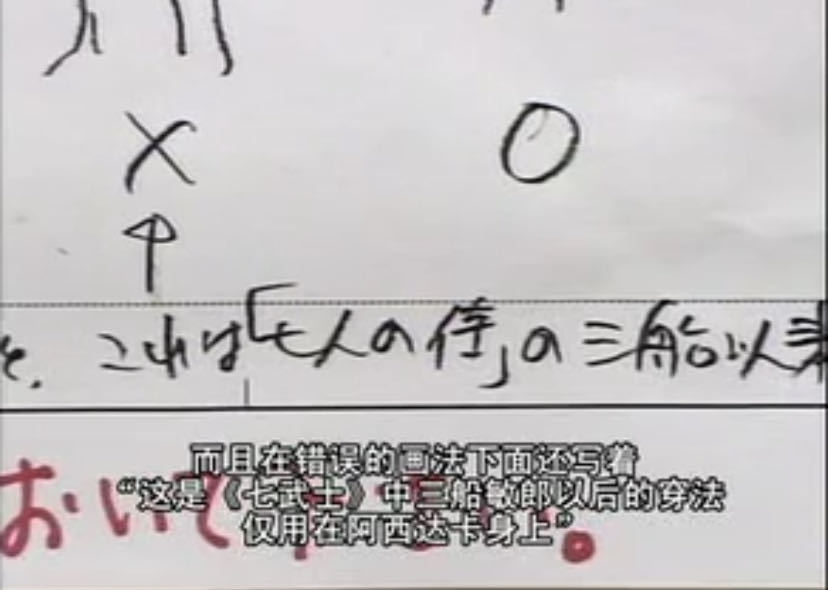 ×
○
↑
と、これは「七人の侍」の三船以来
おいて
而且在错误的画法下面还写着
“这是《七武士》中三船敏郎以后的穿法
仅用在阿西达卡身上”